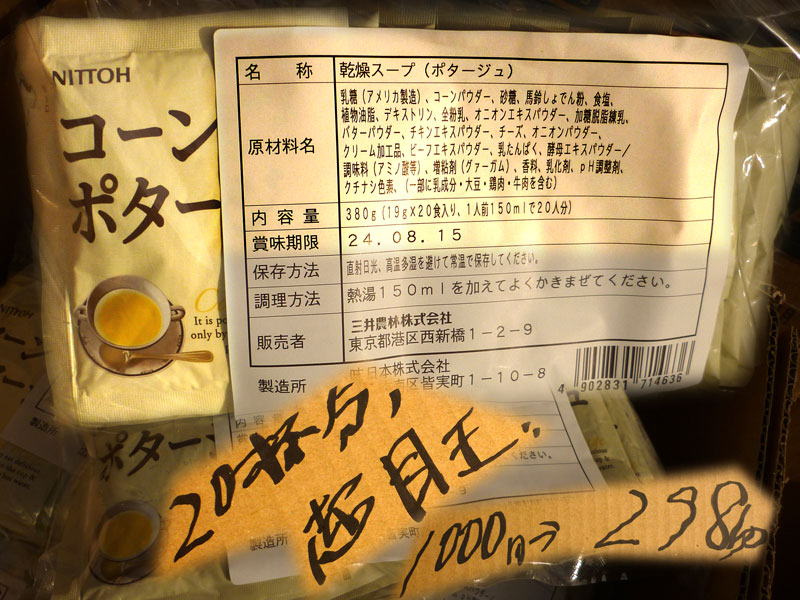 NITTOH
コーン
ポター
It is
only by
名　称 乾燥スープ（ポタージュ）
原材料名 乳糖（アメリカ製造）、コーンパウダー、砂糖、馬鈴しょでん粉、食塩、
植物油脂、デキストリン、全粉乳、オニオンエキスパウダー、加糖脱脂練乳、
バターパウダー、チキンエキスパウダー、チーズ、オニオンパウダー、
クリーム加工品、ビーフエキスパウダー、乳たんぱく、酵母エキスパウダー／
調味料（アミノ酸等）、増粘剤（グァーガム）、香料、乳化剤、ｐＨ調整剤、
クチナシ色素、（一部に乳成分・大豆・鶏肉・牛肉を含む）
内容量 380g（19g×20食入り、1人前150mlで20人分）
賞味期限 24.08.15
保存方法 直射日光、高温多湿を避けて常温で保存してください。
調理方法 熱湯150mlを加えてよくかきまぜてください。
販売者 三井農林株式会社
東京都港区西新橋1-2-9
製造所 味日本株式会社
区皆実町1-10-8
4 902831 714636
20杯分,
超目玉.
1000円→298
ポター
製造所
NITTOH